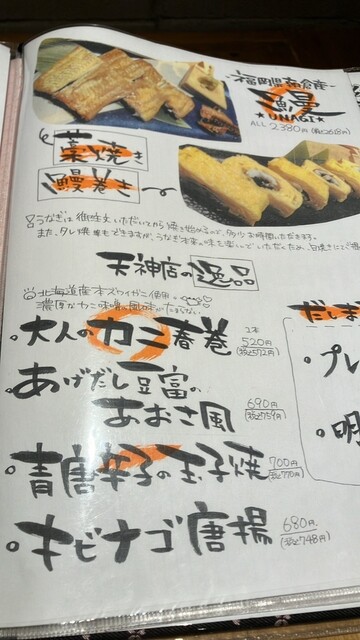 福岡県朝倉産
鰻
★UNAGI★
ALL 2380円(税込2618円)
藁焼き
鰻巻き
うなぎは御注文いただいてから焼き始めるので、多少お時間いただきます。
また、タレ焼きもできますが、うなぎ本来の味を楽しんでいただくため、白焼きにて
天神店の逸品
北海道産本ズワイガニ使用
濃厚なカニ味噌の風味がたまらない
大人のカニ春巻 2本 520円(税込572円)
あげだし豆富の
あおさ風 690円(税込759円)
青唐辛子の玉子焼 700円(税込770円)
キビナゴ唐揚 680円(税込748円)
だしま
プレ
明